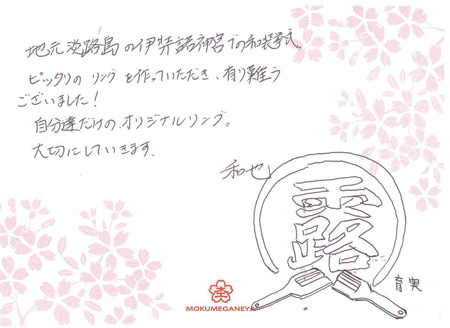 地元淡路島の伊弉諾神宮での和装挙式。
ピッタリの リングを作っていただき、有り難う
ございました!
自分達だけのオリジナルリング。
大切にしていきます。
和也
露
育実
MOKUMEGANEYA